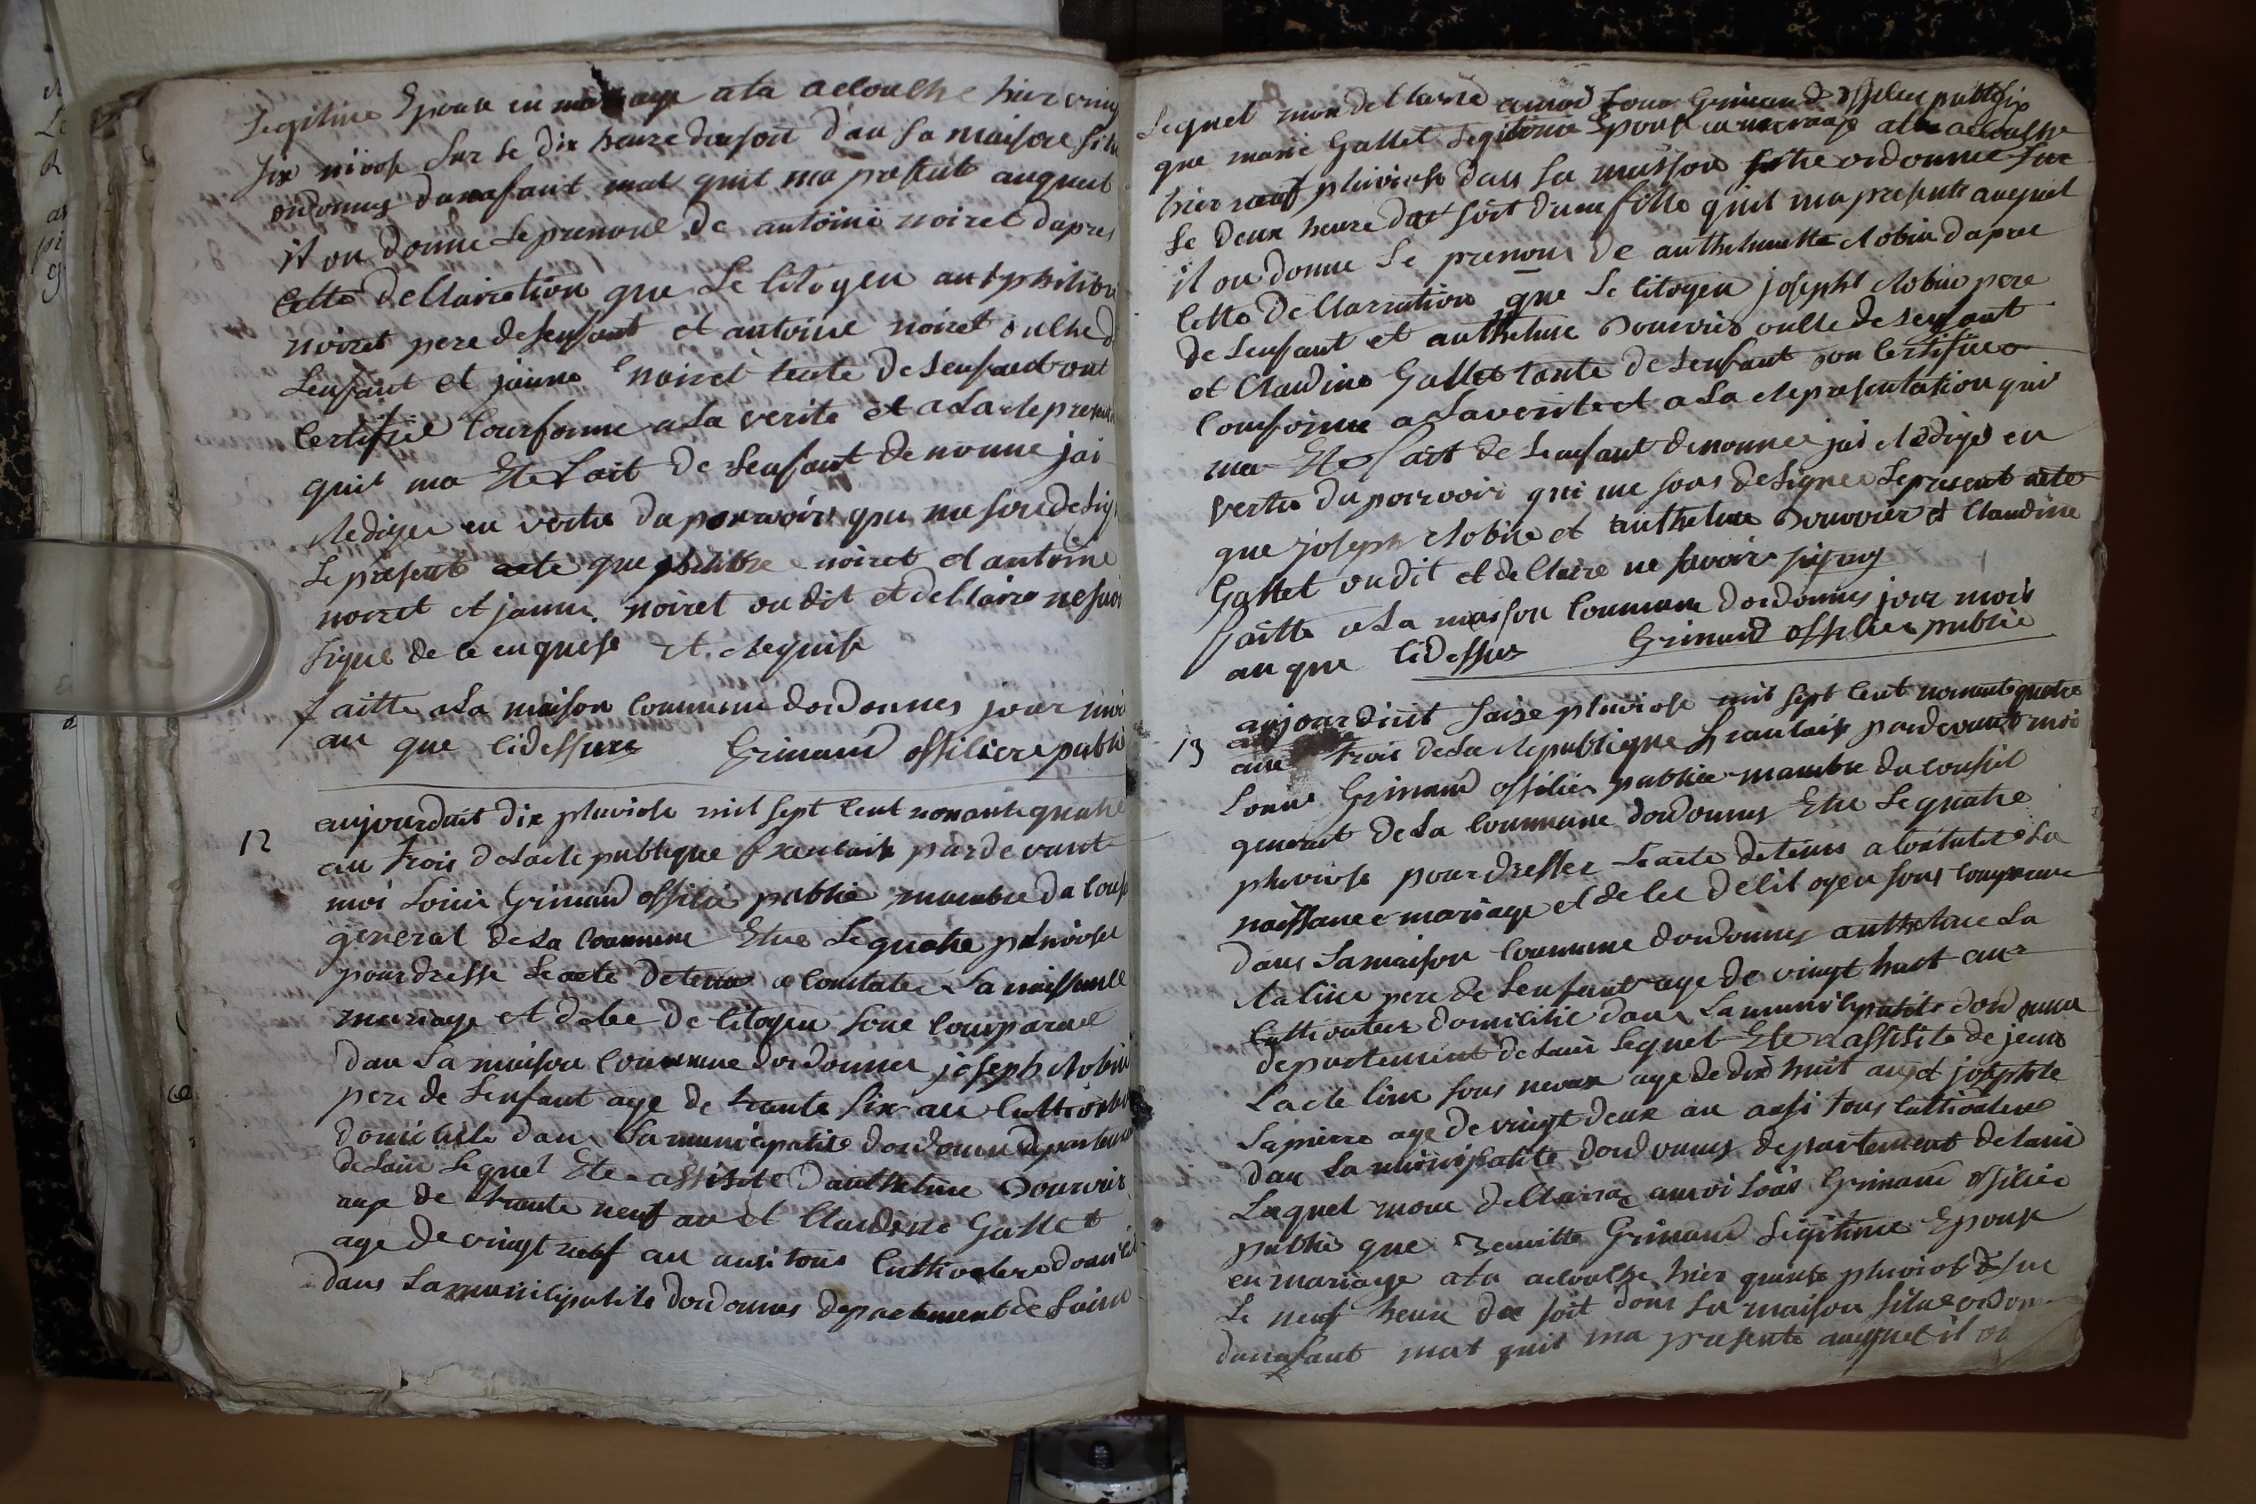 Legitime Epouse en mariage ata acouche hier ving
six nivose sur le dix heure du soit dan sa maison situ
ordonnas dunafant mal quil ma presente auquel
il on donne le prenom de antoine noiret dapres
cette declaration que le citoyen
noiret pere de lenfant et antoine noiret oncle d
lenfant et janne noiret tente de lenfant ont
certifie comforme a la verite et a la represent
quil ma Ete fait de lenfant denonme jai
redigé en vertu du pouvoirs qui me son desig
le presente acte que philibre noiret et antoine
noiret et janne noiret on dit et declaire ne savoi
signe de ce enquese et requise
faitte a la maison commune dordonnas jour moi
an que cidessus Grimaud officiere public
12
aujourduit dix pluviose mil sept cent nonante quatre
an trois de la republique francaise pardevant
moi Louis Grimaud officié public mambre du cons
general de la commune Elue le quatre pluviose
pour dresse le acte detenu a constate la naissance
mariage et dele de citoyen sont comparue
dan la maison commune dordonnas joseph robin
pere de lenfant age de trante six an cultivateu
domicilie dan la municipalité dordonnas departement
de lain lequel Ete assisité danthelme Douvrier
age de trante neuf an et Claudine Gallet
age de vingt neuf an ausi tous cultivatere domicil
dans la municipalite dordonnas departement de lain
Lequel mon declarré a moi Loui Grimaud officier public
que marie Gallet legitime Epouse en mariage ata acouche
hier neuf pluviose dans sa maison situe ordonnas sur
le deux heure du soit dune fille quil ma presente auquel
il on donne le prenom de anthelmette robin dapres
cette declarration que le citoyen joseph robin pere
de lenfant et anthelme Douvrier oncle de lenfant
et Claudine Gallet tante de lenfant on certifie
comforme a la verite et a la representation qui
ma Ete fait de lenfant denonmé jai redigé en
vertu du pouvoir qui me sous designé le present acte
que joseph robin et anthelme Douvrier et Claudine
Gallet on dit et declaire ne savoir signy
faitte a la maison commune dordonnas jour mois
an que cidessus Grimaud officier public
13
aujourdiut saize pluviose mil sept cent nonante quatre
ane trois de la republique francaise pardevant moi
Louis Grimaud officier public mambre du conseil
general de la commune dordonnas Elue le quatre
pluviose pour dresser le acte detenus a constater la
naissance mariage et dele decitoyen sont comparue
dans la maison commune dordonnas anthelme La
racine pere de lenfant age de vingt huit ans
cultivateur domicilié dans la municipalite dordonnas
departement de lain lequel Ete assisite de jean
Laracine sous neveu age de dix huit an et joseph
Lapierre age de vingt deux an ausi tous cultivateur
dan la municipalite dordonnas departement de lain
Lequel mon declarra a moi Loüis Grimaud officié
public que Grimaud Legitime Epouse
en mariage ata acouche hier quinse pluviose sur
le neuf heure du soit dans sa maison situé ordonn
dunafant mal quil ma presente auquel il on